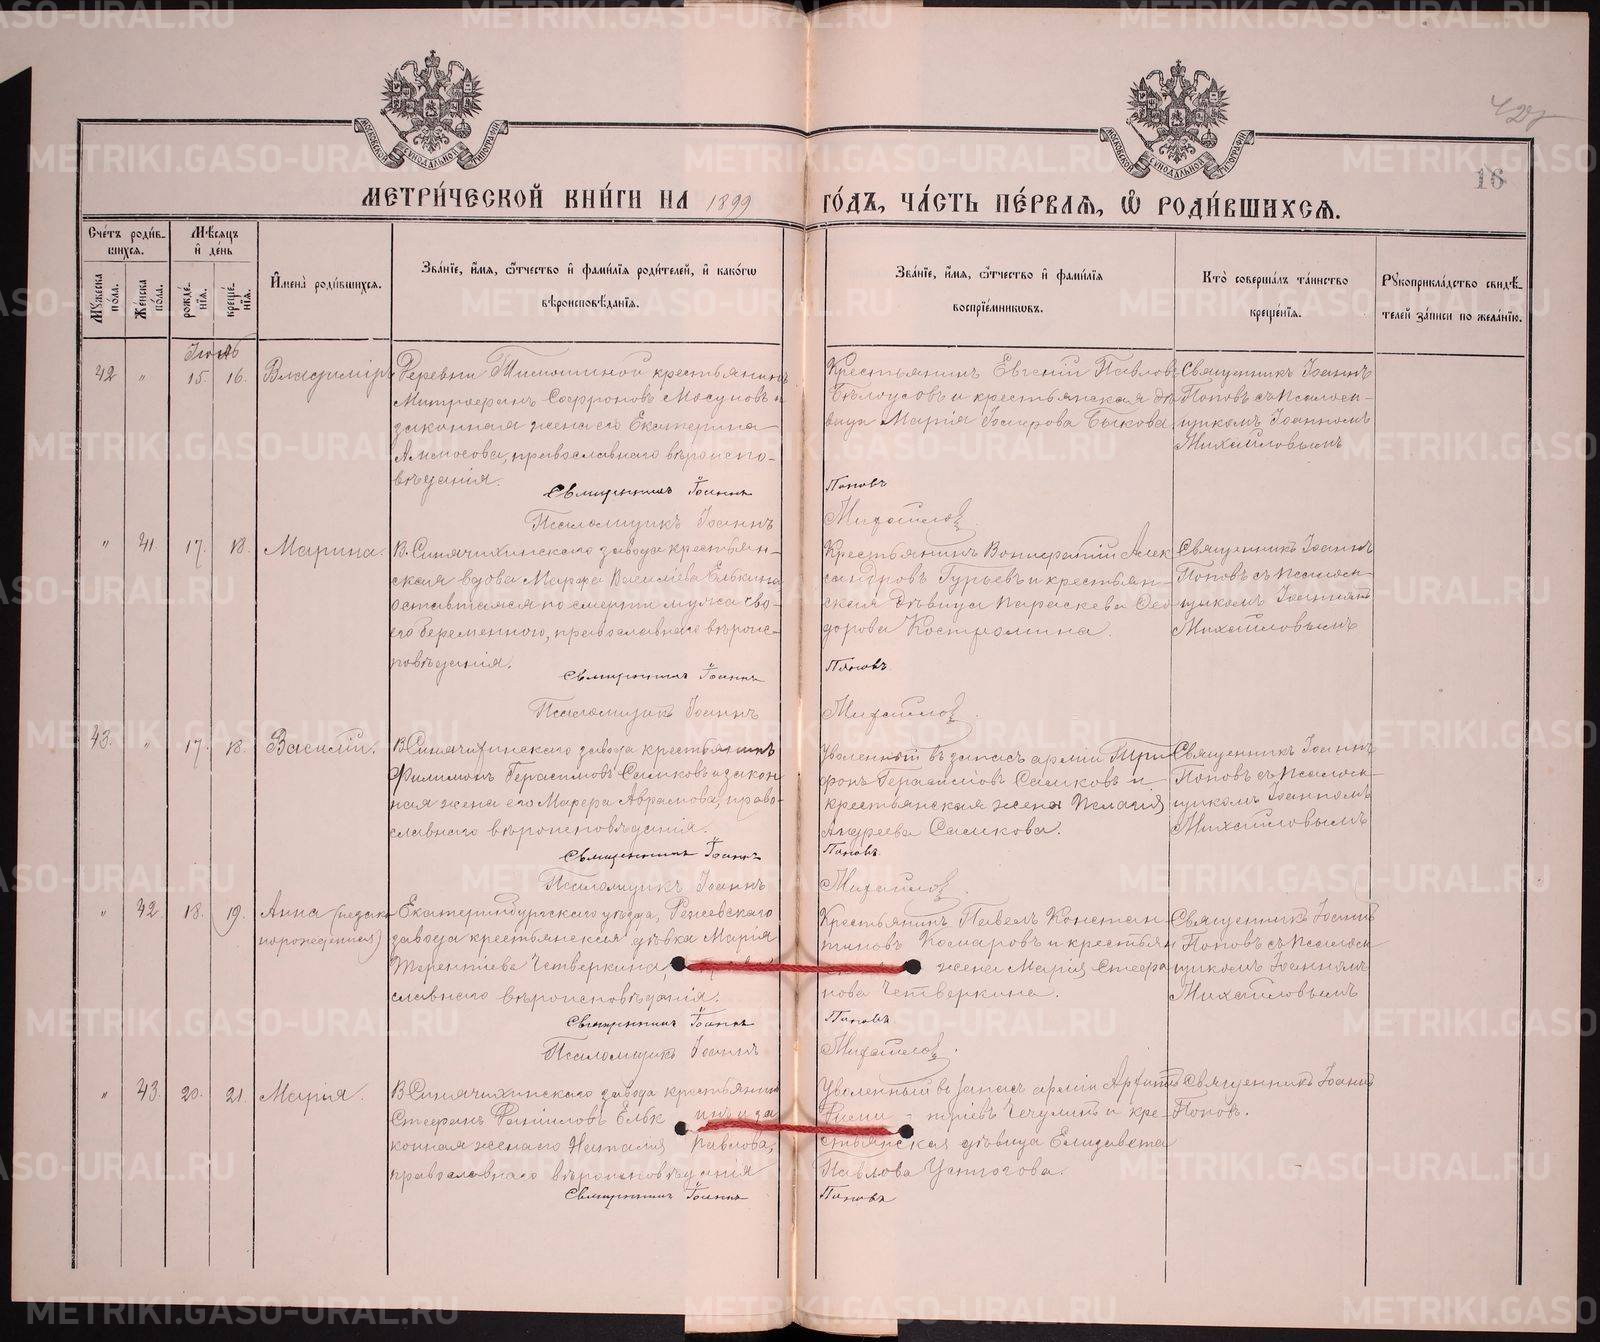 МЕТРИ́ЧЕСКОЙ КНИ́ГИ НА 1899
ГО́ДЪ, ЧА́СТЬ ПЕ́РВАѦ, Ѡ РОДИ́ВШИХСѦ.
16
Сче́тъ роди́в-
шихся.
Мѣ́сяцъ
и де́нь
Му́жеска по́ла.
Же́нска по́ла.
рожде́-
нїя.
креще́-
нїя.
Имена̀ роди́вшихся.
Зва́нїе, и́мя, ѻ́тчество и фами́лїя роди́телей, и како́гѡ
вѣроисповѣ́данїя.
Зва́нїе, и́мя, ѻ́тчество и фами́лїя
воспрїе́мникѡвъ.
Кто̀ соверша́лъ та́инство
креще́нїя.
Рукоприкла́дство свидѣ́-
телей за́писи по жела́нїю.
Іюль
42 " 15. 16. Владиміръ
Деревни Тимошиной крестьянинъ
Митрофанъ Софроновъ Мосуновъ и
законная жена его Екатерина
православнаго вѣроиспо-
вѣданія.
Священникъ Іоаннъ
Псаломщикъ Іоаннъ
Крестьянинъ Евгеній Павловъ
Бѣлоусовъ и крестьянская дѣ-
вица Марія Быкова.
Поповъ
Михайловъ
Священникъ Іоаннъ
Поповъ съ псалом-
щикомъ Іоанномъ
Михайловымъ
" 41 17. 18. Марина.
В. Синячихинскаго завода крестьян-
ская вдова Марѳа Васильева Елькина
оставшаяся по смерти мужа сво-
его беременного, православнаго вѣроис-
повѣданія.
Священникъ Іоаннъ
Псаломщикъ Іоаннъ
Крестьянинъ Вонифатій Алек-
сандровъ Гурьевъ и крестьян-
ская дѣвица Параскева Ѳео-
дорова Костромина.
Поповъ
Михайловъ.
Священникъ Іоаннъ
Поповъ съ псалом-
щикомъ Іоанномъ
Михайловымъ
43. " 17. 18. Василій.
В. Синячихинскаго завода крестьянинъ
Филимонъ Герасимовъ Самковъ и закон-
ная жена его Марѳа Аврамова, право-
славнаго вѣроисповѣданія.
Священникъ Іоаннъ
Псаломщикъ Іоаннъ
Уволенный въ запасъ арміи Три-
фонъ Герасимовъ Самковъ и
крестьянская жена Пелагія
Андреева Самкова.
Поповъ.
Михайловъ.
Священникъ Іоаннъ
Поповъ съ псалом-
щикомъ Іоанномъ
Михайловымъ
" 42 18. 19. Анна (незакон-
норожденная)
Екатеринбургскаго уѣзда, Режевскаго
завода крестьянская дѣвка Марія
Терентіева Четверкина,
славнаго вѣроисповѣданія.
Священникъ Іоаннъ
Псаломщикъ Іоаннъ
Крестьянинъ Павелъ Констан-
тиновъ Комаровъ и крестьян-
жена Марія Стефа-
нова Четверкина.
Поповъ
Михайловъ.
Священникъ Іоаннъ
Поповъ съ псалом-
щикомъ Іоанномъ
Михайловымъ
" 43. 20. 21. Марія.
В. Синячихинскаго завода крестьянинъ
Стефанъ Даниловъ Ельк инъ и за
конная жена его Наталія Павлова,
православнаго вѣроисповѣданія
Священникъ Іоаннъ
Уволенный въ запасъ арміи
Чечулинъ и кре-
стьянская дѣвица Елизавета
Павлова Устюгова.
Поповъ
Священникъ Іоаннъ
Поповъ.
METRIKI.GASO-URAL.RU